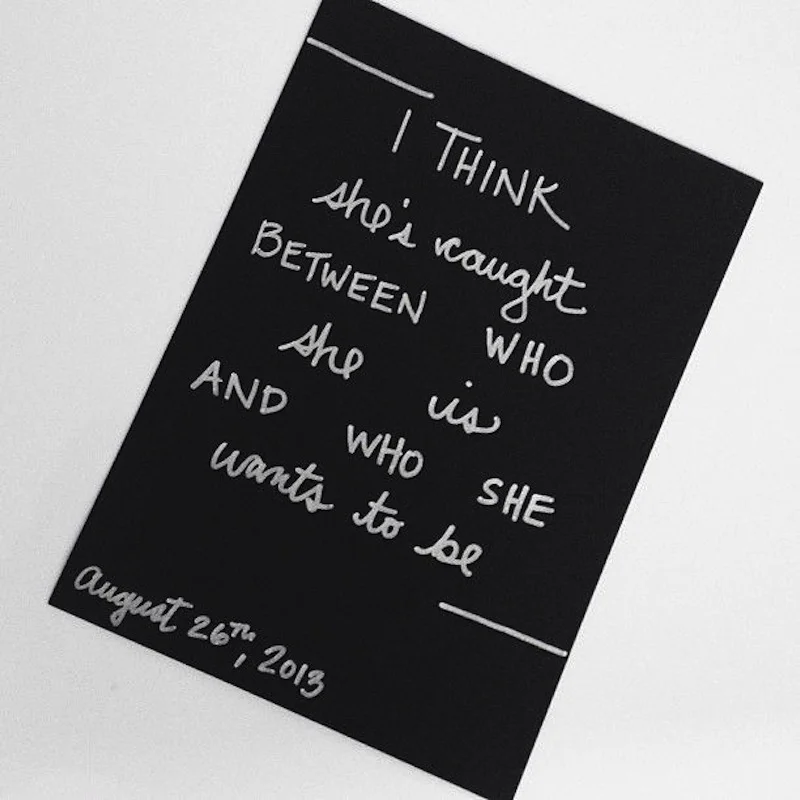 I THINK
she's caught
BETWEEN WHO
she is
AND WHO SHE
wants to be
August 26th, 2013